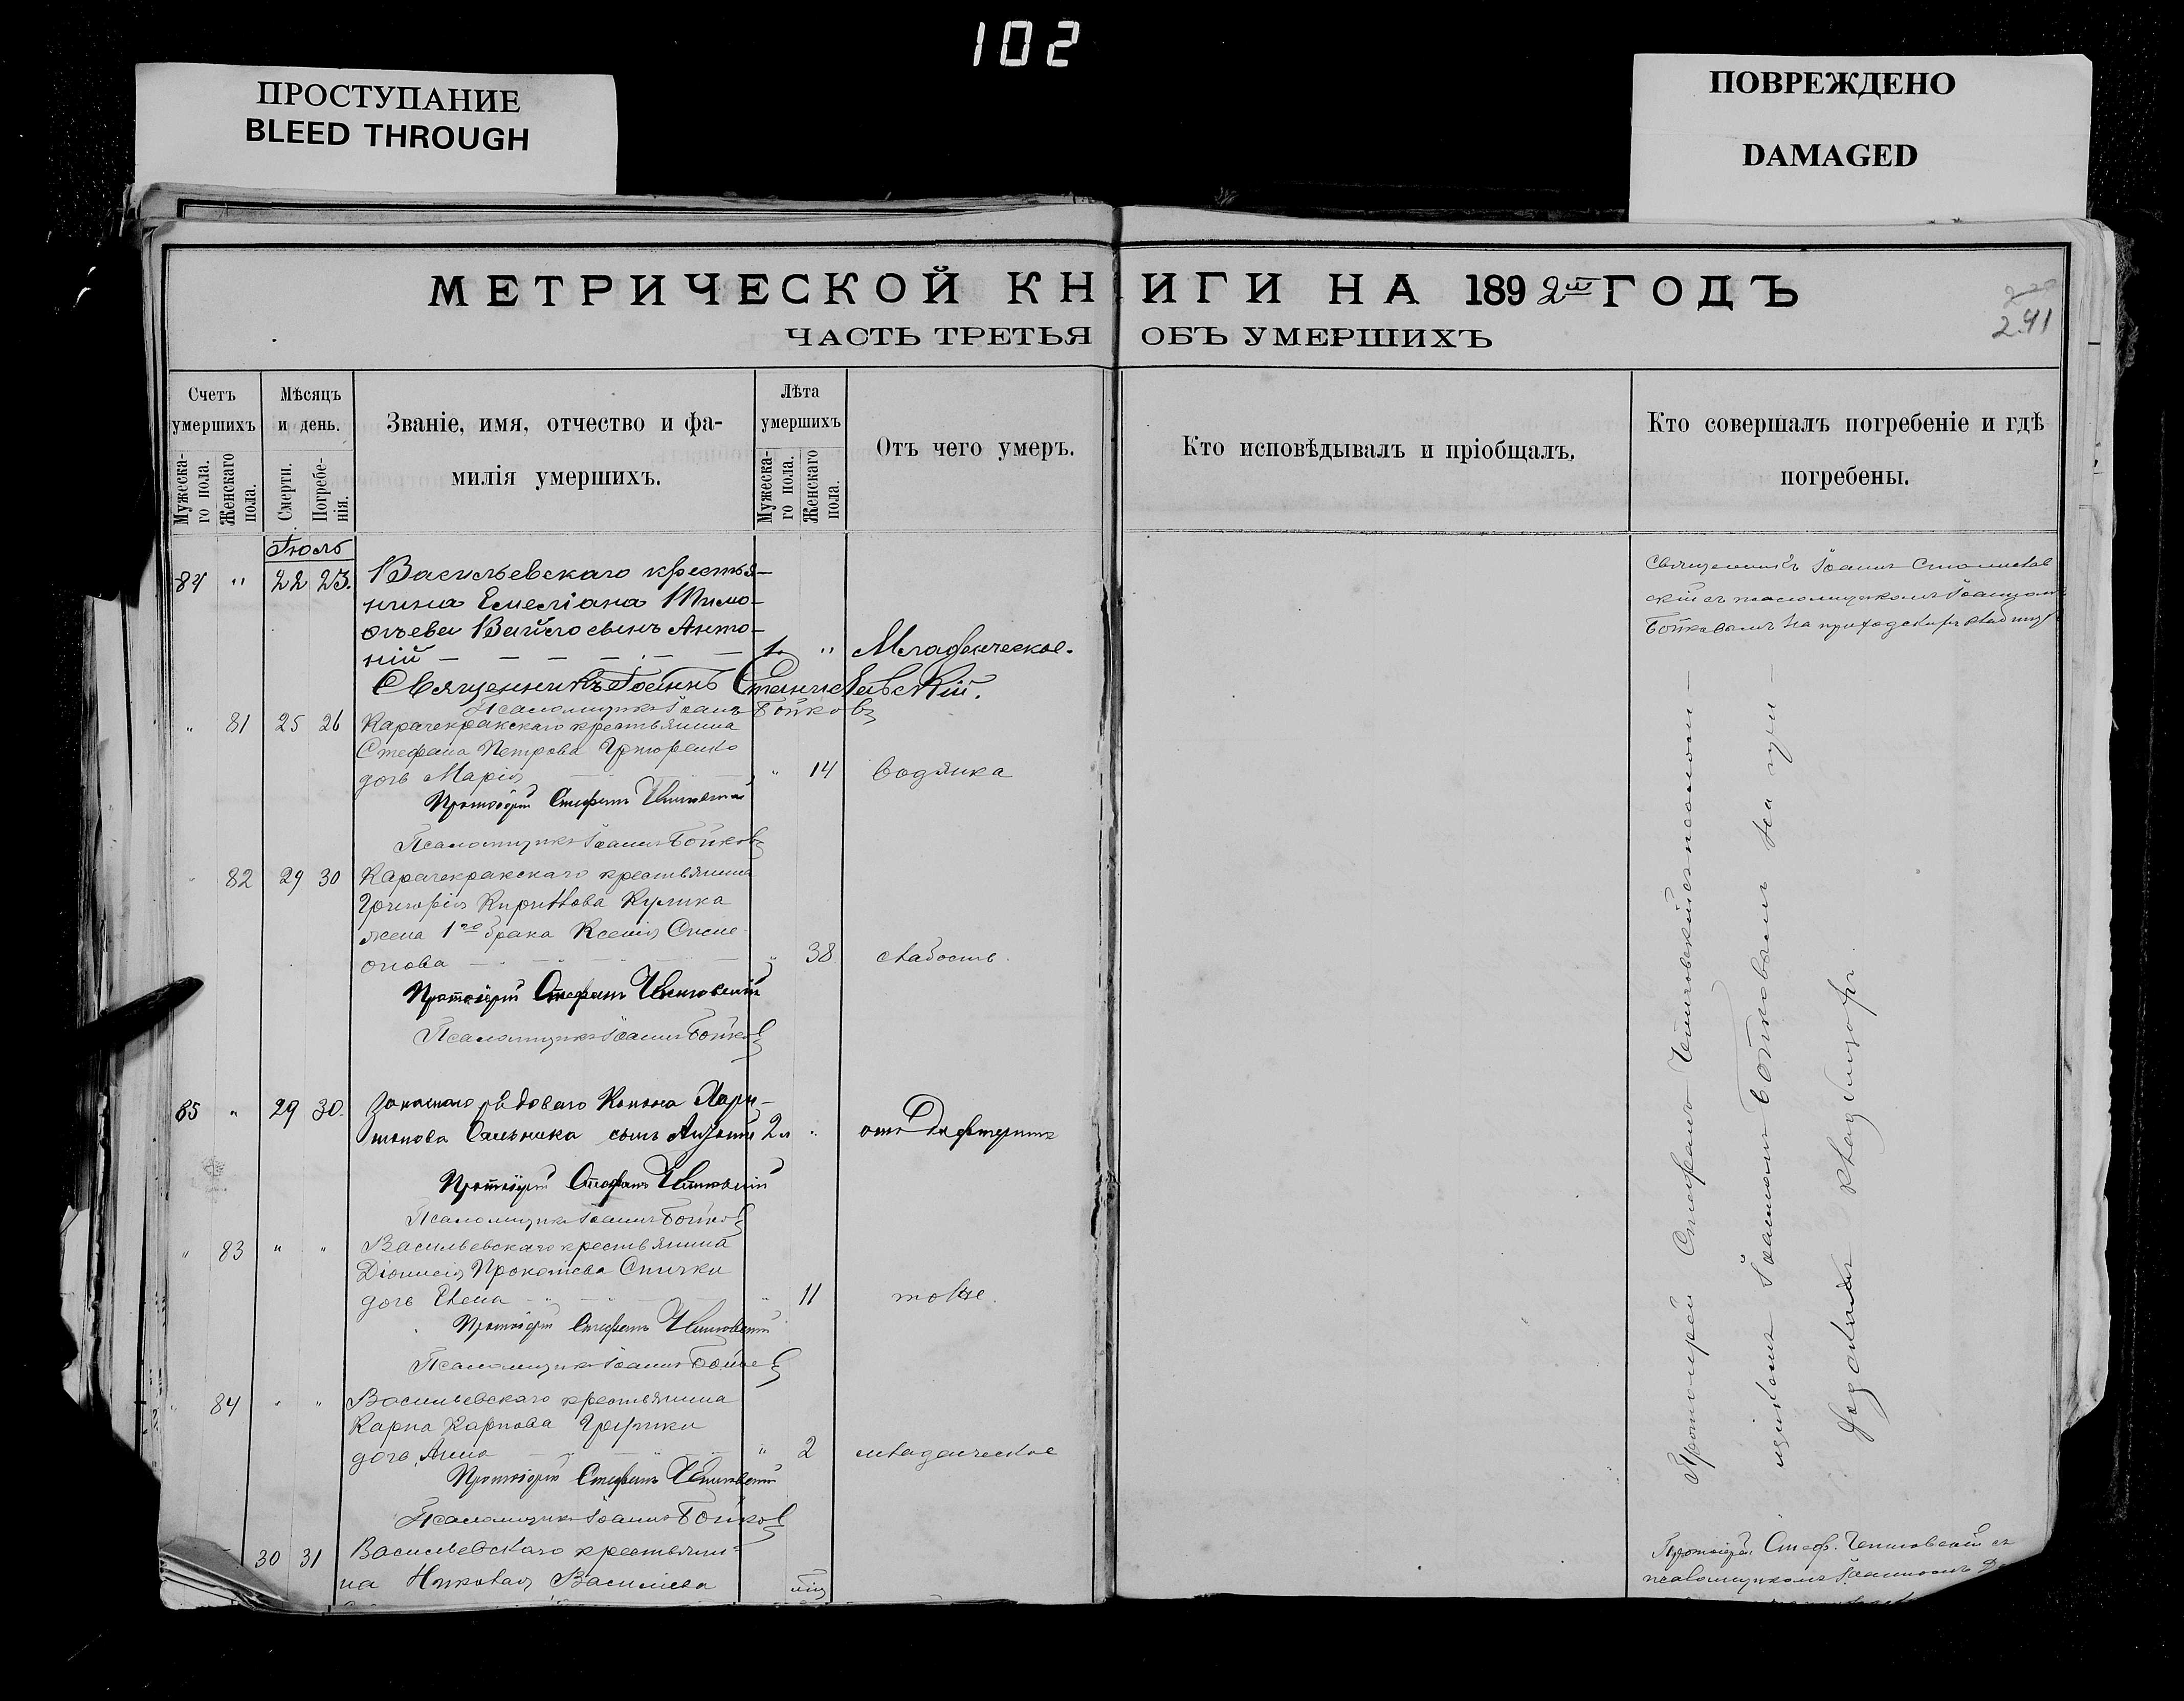 102
ПРОСТУПАНИЕ
BLEED THROUGH
ПОВРЕЖДЕНО
DAMAGED
МЕТРИЧЕСКОЙ КНИГИ НА 1892й ГОДЪ
ЧАСТЬ ТРЕТЬЯ ОБЪ УМЕРШИХЪ
241
Счетъ умершихъ
Мужеска-
го пола.
Женскаго
пола.
Мѣсяцъ
и день.
Смерти.
Погребе-
нія.
Званіе, имя, отчество и фа-
милія умершихъ.
Лѣта
умершихъ
Мужеска-
го пола.
Женскаго
пола.
Отъ чего умеръ.
Кто исповѣдывалъ и пріобщалъ.
Кто совершалъ погребеніе и гдѣ
погребены.
Іюль
84 " 22 23. Васильевскаго крестья-
нина Емеліана Тимо-
сынъ Анто-
ній — 1 " Младенческое.
Священникъ Іоаннъ Станиславскій.
Псаломщикъ Іоаннъ Бойковъ
" 81 25 26 Карачекракскаго крестьянина
Стефана Петрова Григоренко
дочь Марія " 14 водянка
Протоіерей Стефанъ
Псаломщикъ Іоаннъ Бойковъ
" 82 29 30 Карачекракскаго крестьянина
Григорія Кириллова Кулика
жена 1го брака Ксенія Симе-
онова — " 38 слабость.
Протоіерей Стефанъ
Псаломщикъ Іоаннъ Бойковъ
85 " 29 30. Запаснаго рядоваго Конона Хари-
тонова сынъ 2 " отъ Дифтерита
Протоіерей Стефанъ
Псаломщикъ Іоаннъ Бойковъ
" 83 " " Васильевскаго крестьянина
Діонисія Прокопіева Спички
дочь Елена " 11 тоже.
Протоіерей Стефанъ
Псаломщикъ Іоаннъ Бойковъ
" 84 " " Васильевскаго крестьянина
Карпа Карпова
дочь Анна " 2 младенческое
Протоіерей Стефанъ
Псаломщикъ Іоаннъ Бойковъ
30 31 Васильевскаго крестьяни-
на Николая Василіева
Священникъ Іоаннъ Станислав
скій съ псаломщикомъ Іоанномъ
Бойковымъ на приходскомъ кладбищѣ
Протоіерей Стефанъ съ псалом-
щикомъ Іоанномъ Бойковымъ на при-
ходскомъ кладбищѣ.
Протоіерей Стеф. съ
псаломщикомъ Іоанномъ